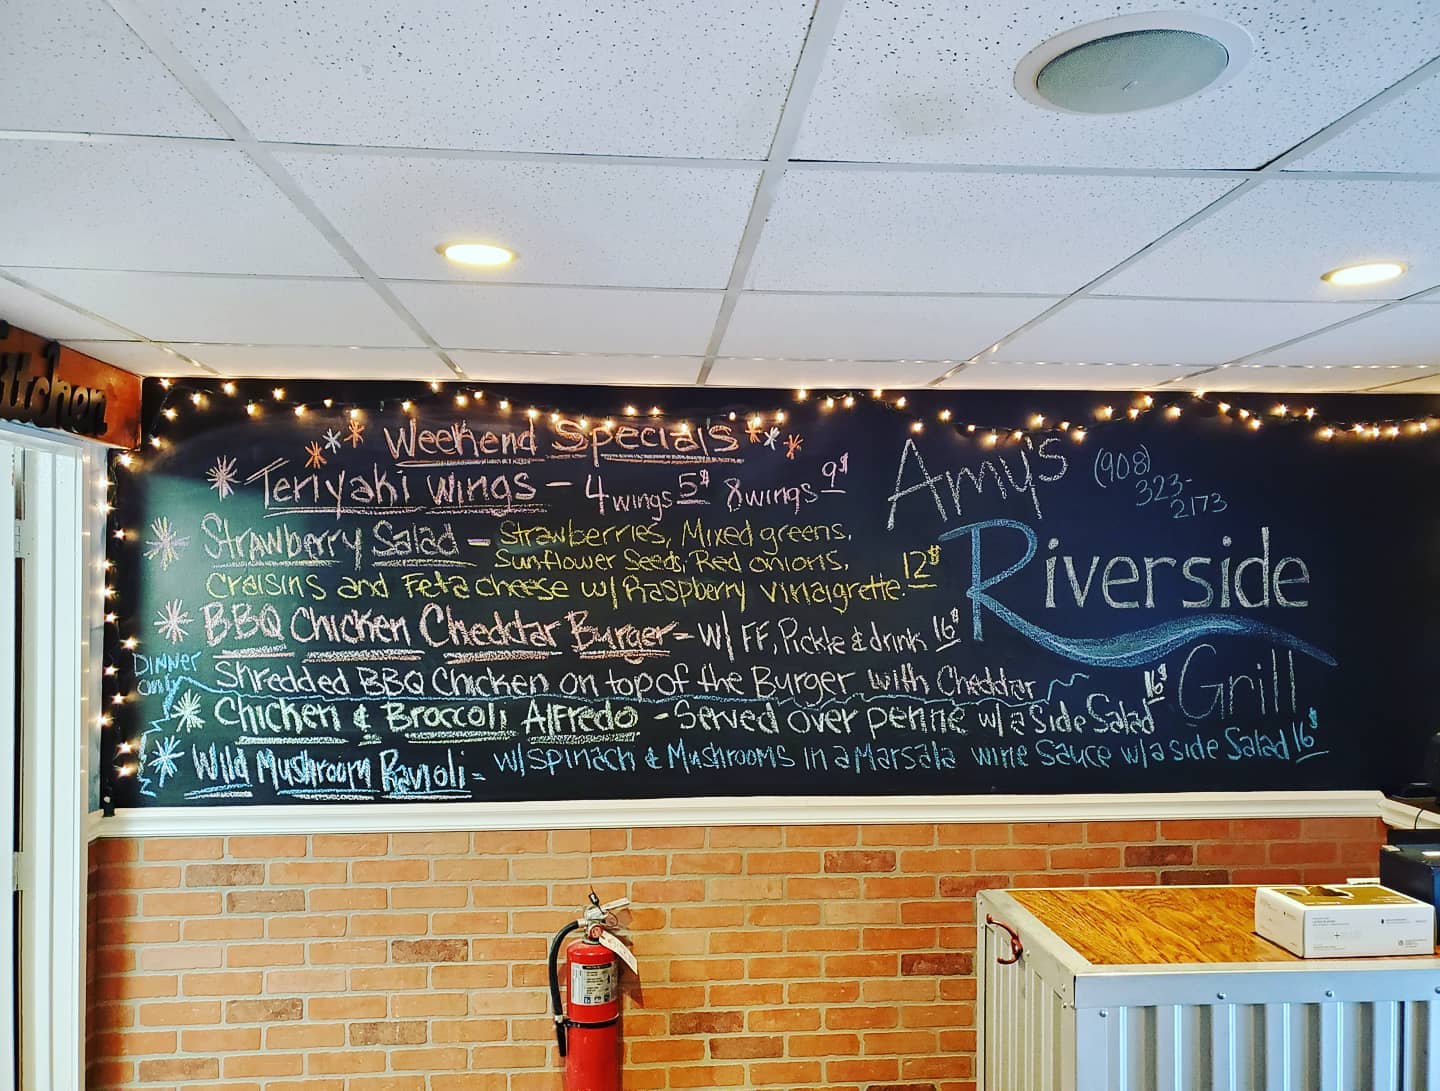 Kitchen
Weekend Special's
Teriyaki wings - 4 wings 5$ 8 wings 9$
Strawberry Salad - Strawberries, Mixed greens,
Sunflower Seeds, Red onions,
Craisins and Feta cheese w/ Raspberry vinaigrette. 12$
BBQ Chicken Cheddar Burger - w/ FF, Pickle & drink 16$
Shredded BBQ Chicken on top of the Burger with Cheddar
DINNER
only
Chicken & Broccoli Alfredo - Served over penne w/ a side Salad 16$
Wild Mushroom Ravioli - w/ Spinach & Mushrooms in a Marsala wine sauce w/ a side Salad 16$
Amy's
Riverside
Grill
(908)
323-
2173